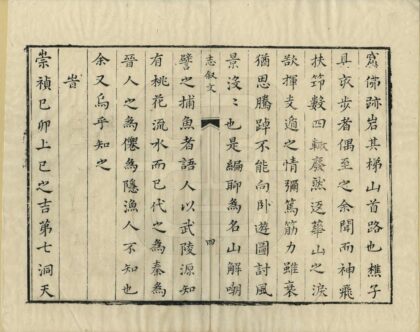 窩佛跡岩其梯山首路也樵子
具或步者偶至之余聞而神飛
扶筇數四輒廢然返華山之淚
欲揮支遁之情彌篤筋力雖衰
猶思騰踔不能向卧遊圖討風
景沒〻也是編聊爲名山解嘲
志叙文
四
譬之捕魚者語人以武陵源知
有桃花流水而已代之爲秦爲
晉人之爲僊爲隱漁人不知也
余又烏乎知之
旹
崇禎已卯上已之吉第七洞天